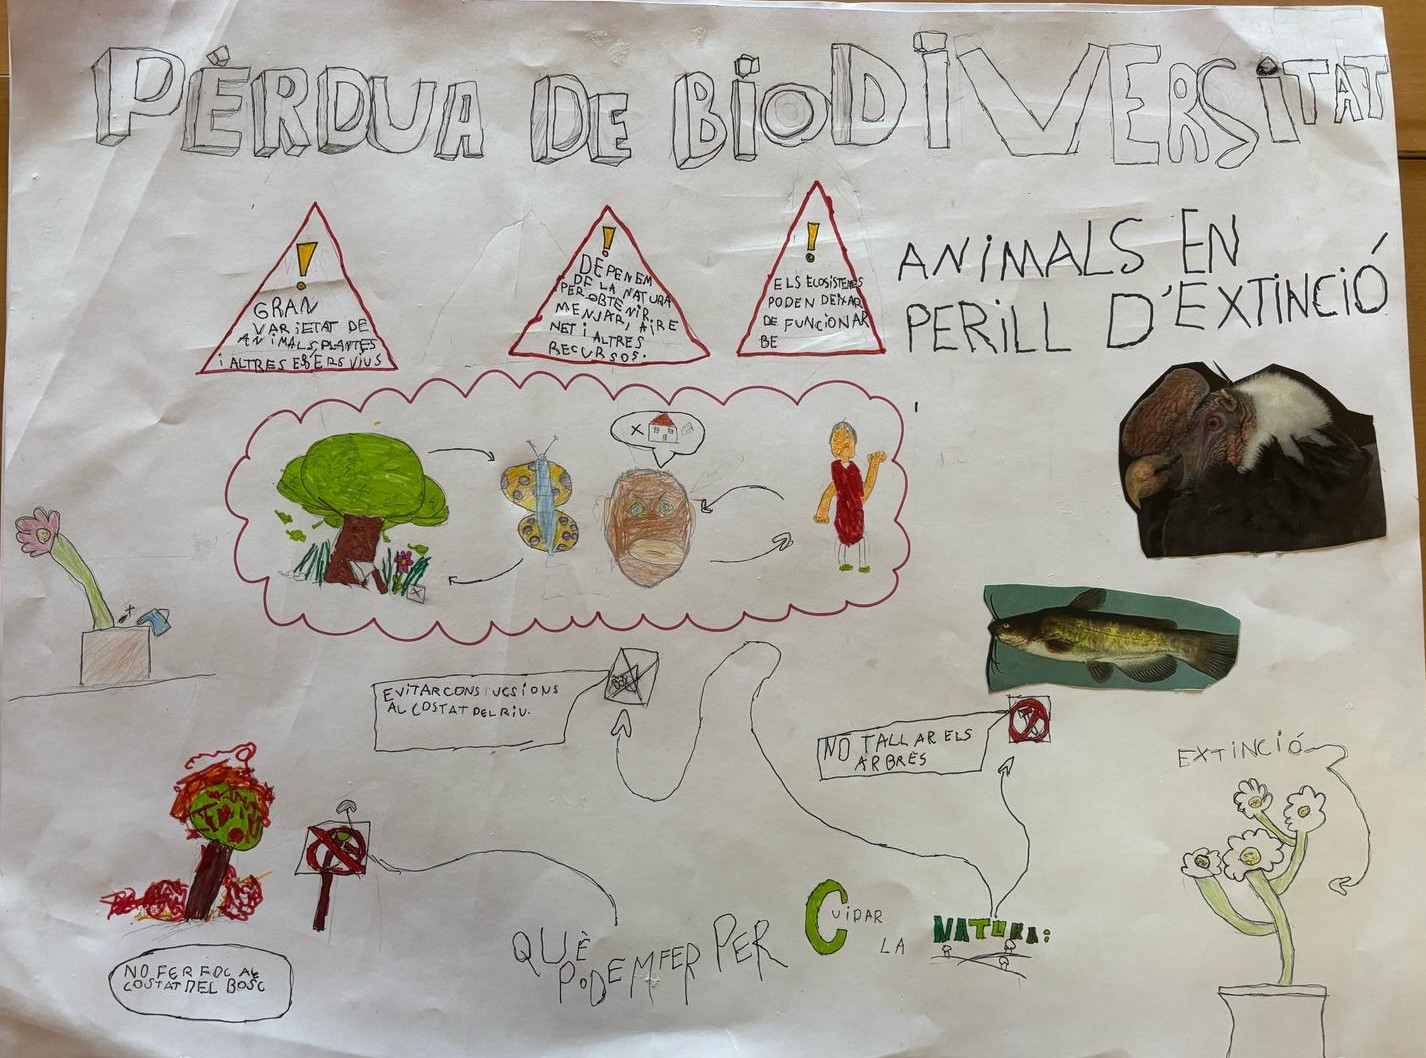 PÈRDUA DE BiODiVERSiTAT
!
GRAN
VARiETAT DE
ANiMALS, PLANTES
i ALTRES ESSERS VIUS
!
DEPENEM
DE LA NATURA
PER OBTENIR,
MENJAR, AIRE
NET i ALTRES
RECURSOS.
!
ELS ECOSISTEMES
PODEN DEIXAR
DE FUNCIONAR
BE
ANiMALS EN
PERiLL D'EXTiNCiÓ
X
EViTAR CONSTUCSiONS
AL COSTAT DEL RiU.
NO TALLAR ELS
ARBRES
EXTiNCiÓ
NO FER FOC AL
COSTAT DEL BOSC
QUÈ
PODEM FER PER
CUiDAR
LA
NATURA: